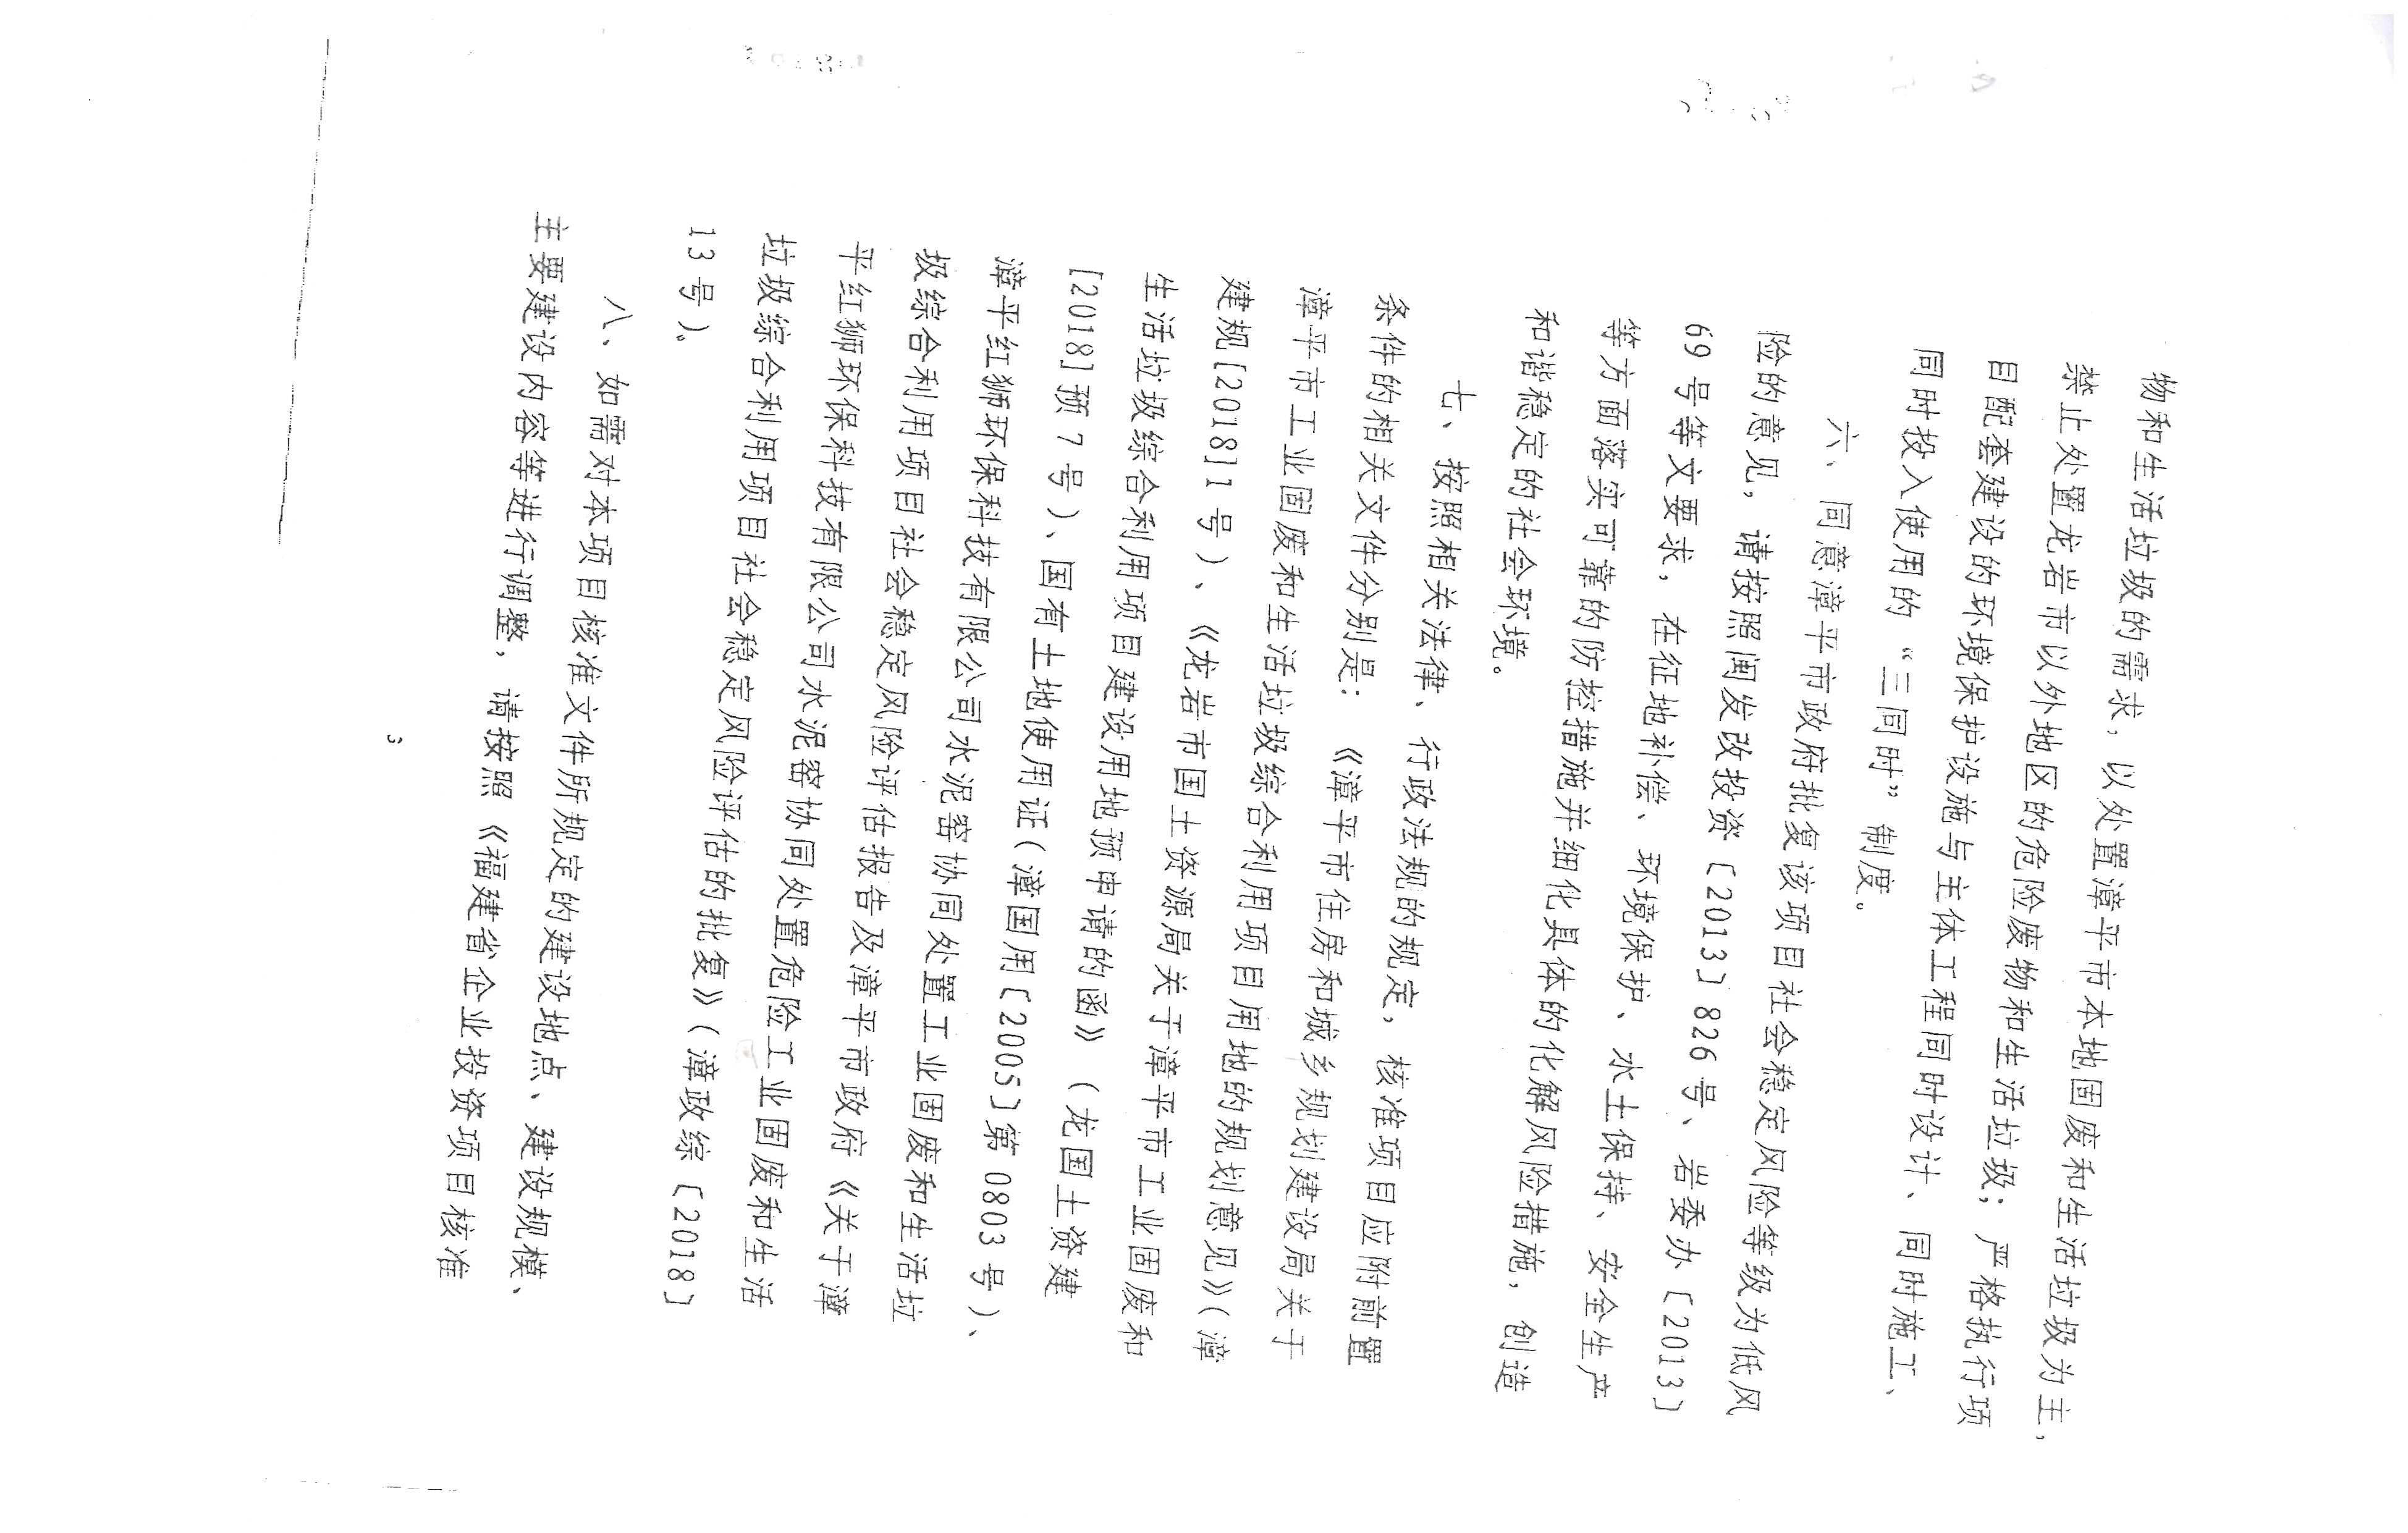 物和生活垃圾的需求，以处置漳平市本地固废和生活垃圾为主，
禁止处置龙岩市以外地区的危险废物和生活垃圾；严格执行项
目配套建设的环境保护设施与主体工程同时设计、同时施工、
同时投入使用的“三同时”制度。
六、同意漳平市政府批复该项目社会稳定风险等级为低风
险的意见，请按照闽发改投资〔2013〕826号、岩委办〔2013〕
69号等文要求，在征地补偿、环境保护、水土保持、安全生产
等方面落实可靠的防控措施并细化具体的化解风险措施，创造
和谐稳定的社会环境。
七、按照相关法律、行政法规的规定，核准项目应附前置
条件的相关文件分别是：《漳平市住房和城乡规划建设局关于
漳平市工业固废和生活垃圾综合利用项目用地的规划意见》（漳
建规[2018]1号）、《龙岩市国土资源局关于漳平市工业固废和
生活垃圾综合利用项目建设用地预申请的函》（龙国土资建
[2018]预7号）、国有土地使用证（漳国用〔2005〕第0803号）、
漳平红狮环保科技有限公司水泥窑协同处置工业固废和生活垃
圾综合利用项目社会稳定风险评估报告及漳平市政府《关于漳
平红狮环保科技有限公司水泥窑协同处置危险工业固废和生活
垃圾综合利用项目社会稳定风险评估的批复》（漳政综〔2018〕
13号）。
八、如需对本项目核准文件所规定的建设地点、建设规模、
主要建设内容等进行调整，请按照《福建省企业投资项目核准
3